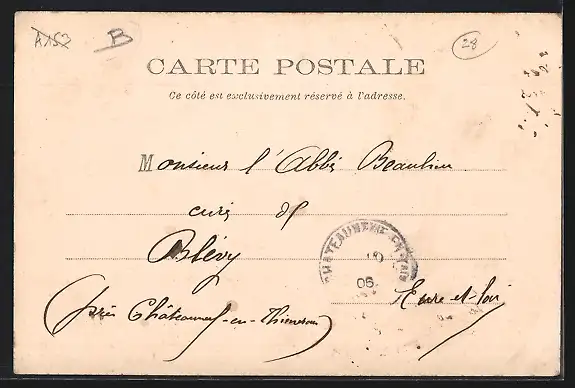 A152 B 28
CARTE POSTALE
Ce côté est exclusivement réservé à l'adresse.
Monsieur l'Abbé Beaulieu
curé de
Blévy
CHATEAUNEUF-EN-THIM
06
Eure-et-Loir
(près Châteauneuf-en-Thimerais)